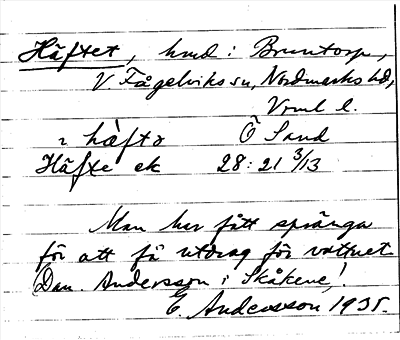 Häftet, hmd: Bruntorp,
V Fågelviks sn, Nordmarks hd,
Vrml l.
2 hàfto Ö Sand
Häfte ek 28: 21 3/13
Man har fått spränga
för att få utdrag för vattnet.
Dan. Andersson i Skåkene!
E. Andersson 1935.